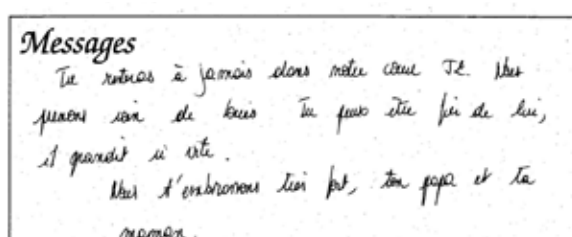 Messages
Tu reteras à jamais dans notre cœur JL. Nous
prenons soin de Louis Tu peux être fier de lui,
il grandit si vite.
Nous t'embrassons très fort, ton papa et ta
maman.